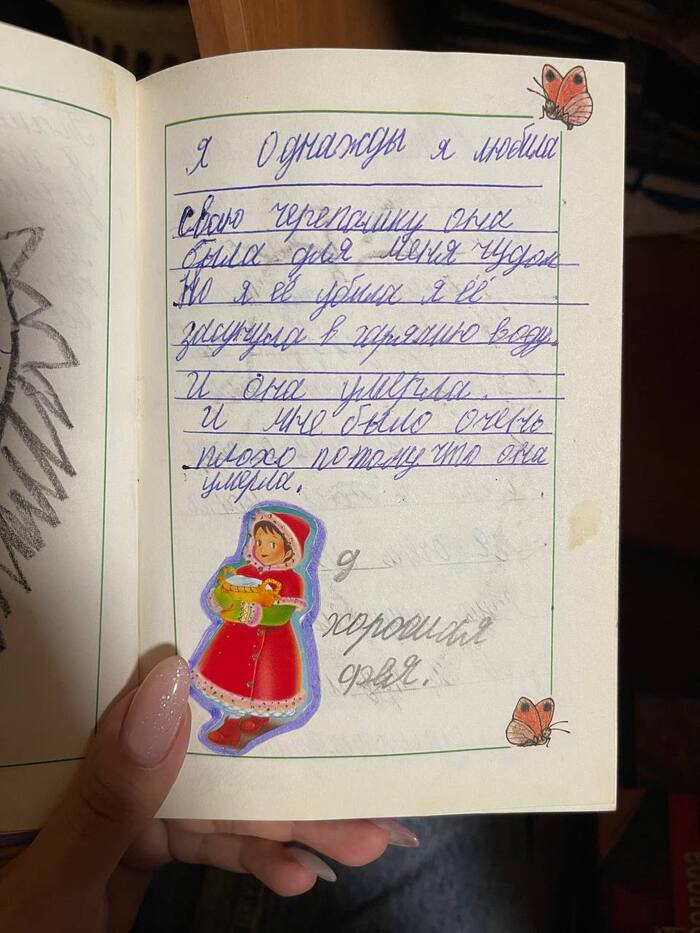 Я Однажды я любила
сваю черепашку она
была для меня чудом
Но я её убила я её
засунула в харячию воду.
И она умерла.
И мне было очень
плохо потому что она
умерла.
я
хорошая
фея.